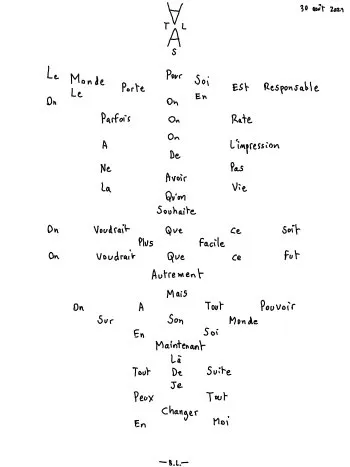 30 août 2021
A
T L
A
S
Le Monde Pour Soi
Le Porte En Est Responsable
On On
Parfois On Rate
On
A De L'impression
Ne Pas
Avoir
La Vie
Qu'on
Souhaite
On Voudrait Que Ce Soit
Plus Facile
On Voudrait Que Ce Fut
Autrement
Mais
On A Tout Pouvoir
Sur Son Monde
En Soi
Maintenant
Là
Tout De Suite
Je
Peux Tout
Changer
En Moi
—B.L.—